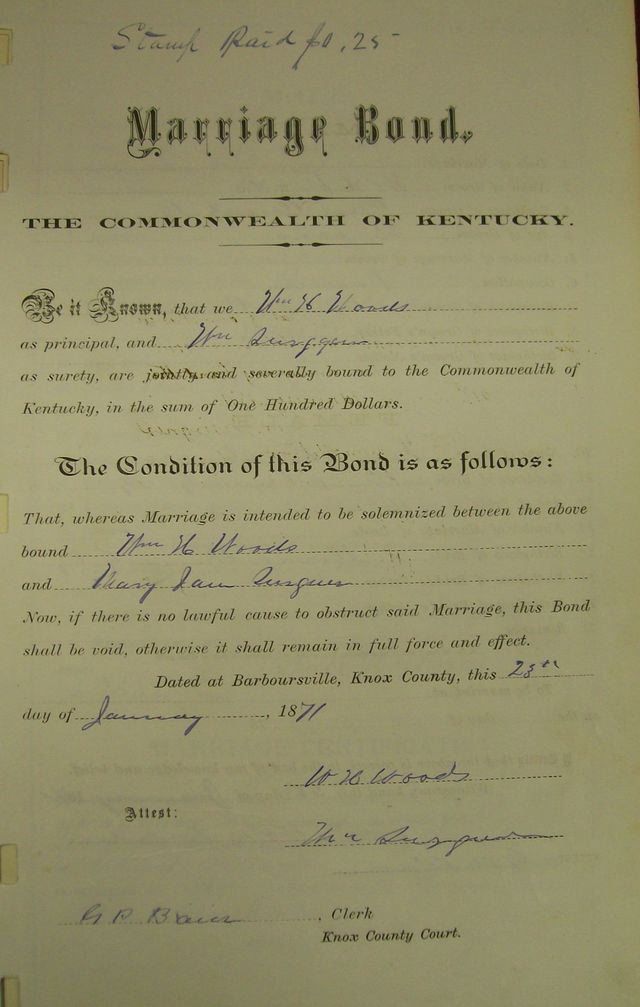 Stamp Paid $0.25
Marriage Bond.
THE COMMONWEALTH OF KENTUCKY.
Be it Known, that we Wm H Woods
as principal, and Wm
as surety, are jointly and severally bound to the Commonwealth of
Kentucky, in the sum of One Hundred Dollars.
The Condition of this Bond is as follows:
That, whereas Marriage is intended to be solemnized between the above
bound Wm H Woods
and Mary Jane
Now, if there is no lawful cause to obstruct said Marriage, this Bond
shall be void, otherwise it shall remain in full force and effect.
Dated at Barboursville, Knox County, this 28th
day of January, 1871
W H Woods
Attest:
Wm
Clerk
Knox County Court.